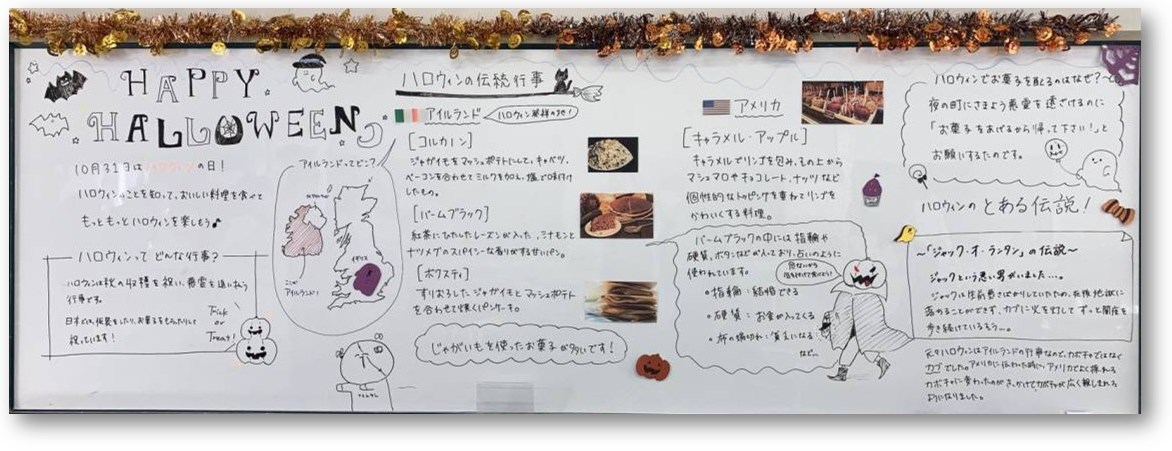 HAPPY
HALLOWEEN
10月31日はハロウィンの日!
ハロウィンのことを知って、おいしい料理を食べて
もっともっとハロウィンを楽しもう♪
ハロウィンって どんな行事?
ハロウィンは秋の収穫を祝い、悪霊を追い払う
行事です。
日本では、仮装をしたり、お菓子をもらったりして
祝っています!
Trick
or
Treat!
アイルランドってどこ?
イギリス
ここが
アイルランド!
ハロウィンの伝統行事
アイルランド
ハロウィン発祥の地!
[コルカノン]
ジャガイモをマッシュポテトにして、キャベツ、
ベーコンを合わせてミルクを加え、塩で味付け
したもの。
[バームブラック]
紅茶にひたしたレーズンが入った、シナモンと
ナツメグのスパイシーな香りがする甘いパン。
[ボクスティ]
すりおろしたジャガイモとマッシュポテト
を合わせて焼くパンケーキ。
じゃがいもを使ったお菓子が多いです!
アメリカ
[キャラメル・アップル]
キャラメルでリンゴを包み、その上から
マシュマロやチョコレート、ナッツなど
個性的なトッピングを重ねてリンゴを
かわいくする料理。
バームブラックの中には指輪や
硬貨、ボタンなどが入っており、占いのように
使われています。
危ないから
気を付けて食べよう!
・指輪:結婚できる
・硬貨:お金が入ってくる
・布の端切れ:貧乏になる
など…
ハロウィンでお菓子を配るのはなぜ?
夜の町にさまよう悪霊を遠ざけるのに
「お菓子をあげるから帰って下さい!」と
お願いするためです。
ハロウィンの とある伝説!
~「ジャック・オ・ランタン」の伝説~
ジャックという悪い男がいました…。
ジャックは生前悪さばかりしていたため、死後地獄に
落ちることができず、カブに火を灯して ずっと闇夜を
歩き続けているそう…。
元々ハロウィンはアイルランドの行事なので、カボチャではなく
カブでした。アメリカに伝わった時に、アメリカでよく採れる
カボチャに変わったのがきっかけで、カボチャが広く親しまれる
ようになりました。